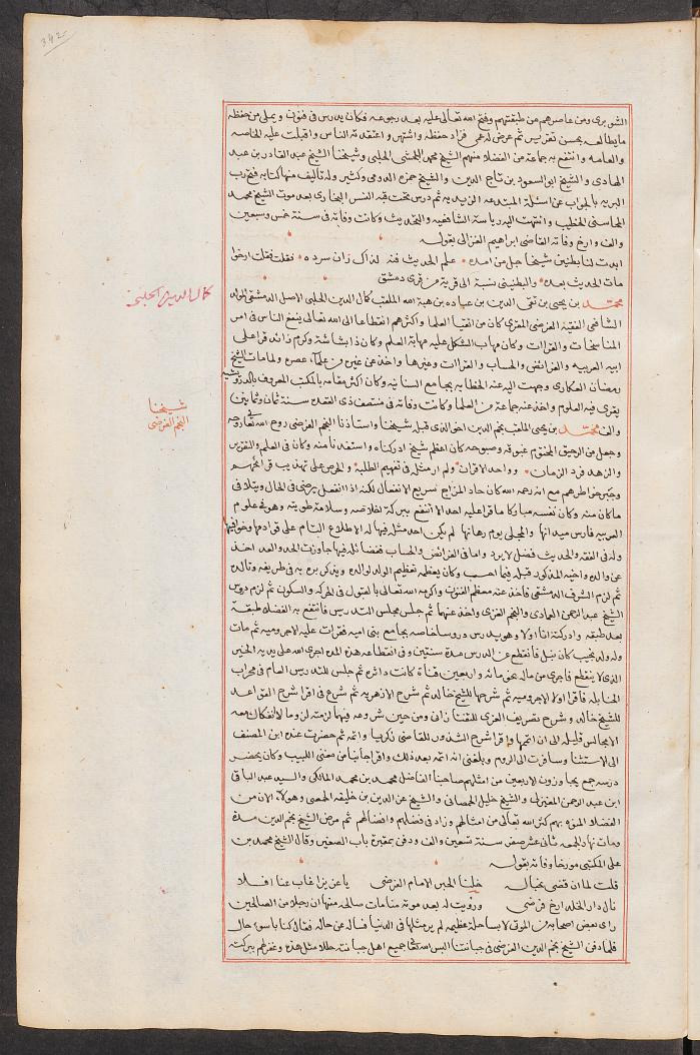 342
الشوبرى ومن عاصرهم من طبقتهم وفتح الله تعالى عليه بعد رجوعه فكان يدرس فى فنون ويملى من حفظه
ما يطالعه بحسن تقرير ثم عرض له عمى فزاد حفظه واشتهر واعتقدته الناس واقبلت عليه الخاصه
والعامه وانتفع به جماعة من الفضلا منهم الشيخ محمد الحلبى وشيخنا الشيخ عبد القادر بن عبد
الهادى والشيخ ابو السعود بن تاج الدين والشيخ حمزه الدومى وكثير وله تاليف منها كتابه فتح رب
البريه بالجواب عن اسئلة المبتدعه الزيديه ثم درس تحت قبة النسر البخارى بعد موت الشيخ محمد
المحاسنى الخطيب وانتهت اليه رياسة الشافعيه والتحديث وكانت وفاته فى سنة خمس وسبعين
والف وارخ وفاته القاضى ابراهيم الغزالى بقوله
ابدت لنا بطنين شيخا جل من امده علم الحديث فنه لذاك زان سرده فقلت فقلت ارخوا
مات الحديث بعده والبطنينى نسبة الى قرية من قرى دمشق
كمال الدين الحلبى
محمد بن يحيى بن تقى الدين بن عباده بن هبة الله الملقب كمال الدين الحلبى الاصل الدمشقى المولد
الشافعى الفقيه الفرضى المقرى كان من اتقيا العلما واكثرهم انقطاعا الى الله تعالى ينفع الناس فى امر
المناسخات والقراات وكان مهاب الشكل عليه مهابة العلم وكان ذا بشاشة وكرم زائد قرا على
ابيه العربيه والفرائض والحساب والقراات وغيرها واخذ عن غيره من علماء عصره ولما مات الشيخ
رمضان العكارى وجهت اليه عنه الخطابه بجامع السنانيه وكان اكثر مقامه بالمكتب المعروف بالدرويشيه
يقرى فيه العلوم واخذ عنه جماعة من العلما وكانت وفاته فى منتصف ذى القعده سنة ثمان وثمانين
والف
شيخنا
النجم الفرضى
محمد بن يحيى الملقب نجم الدين اخو الذى قبله شيخنا واستاذنا النجم الفرضى روح الله تعالى روحه
وجعل من الرحيق المختوم غبوقه وصبوحه كان اعظم شيخ ادركناه واستفدنا منه وكان فى العلم والتقوى
والزهد فرد الزمان وواحد الاقران ولم ار مثله فى تفهيم الطلبة والحرص على تهذيب قرائحهم
وجبر خواطرهم مع انه رحمه الله كان حاد المزاج سريع الانفعال لكنه اذا انفعل يرضى فى الحال ويتلافى
ما كان منه وكان نفسه مباركا ما قرا عليه احد الا انتفع ببركة اخلاصه وسلامة طويته وهو فى علوم
العربيه فارس ميدانها والمجلى يوم رهانها لم يكن احد مثله فيها له الاطلاع التام على قوادمها وخوافيها
وله فى الفقه والحديث فضل لا يرد واما فى الفرائض والحساب ففضائله فيها جاوزت الحد والعد اخذ
عن والده واخيه المذكور قبله فيما احسب وكان يعظمه تعظيم الولد لوالده ويذكر بره به فى طريقه وتالده
ثم لزم الشرف الدمشقى فاخذ عنه معظم الفنون واكرمه الله تعالى بالقبول فى الحركه والسكون ثم لزم دروس
الشيخ عبد الرحمن العمادى والنجم الغزى واخذ عنهما ثم جلس مجلس التدريس فانتفع به الفضلاء طبقة
بعد طبقه وادركته انا اولا وهو يدرس دروسا خاصه بجامع بنى اميه فقرات عليه الاجروميه ثم مات
وله ولد نجيب كان نبل فانقطع عن الدرس مدة سنتين وفى انقطاعه هذه المده اجرى الله على يديه الخير
الذى لا ينقطع فاجرى من ماله نحو مائه واربعين قناة كانت داثره ثم جلس للتدريس العام فى محراب
الحنابله فاقرا اولا الاجروميه ثم شرحها للشيخ خالد ثم شرح الازهريه ثم شرع فى اقرا شرح القواعد
للشيخ خالد وشرح تصريف العزى للتفتازانى ومن حين شروعه فيها لزمته لزوما لا انفكاك معه
الا مجالس قليله الى ان اتمها واقرا شرح الشذور للقاضى زكريا واتمه ثم حضرت عنده ابن المصنف
الى الاستثنا وسافرت الى الروم وبلغنى انه اتمه بعد ذلك واقرا جانبا من مغنى اللبيب وكان يحضر
درسه جمع يجاوزون الاربعين من امثلهم صاحبنا الفاضل محمد بن محمد المالكى والسيد عبد الباقى
ابن عبد الرحمن المغيزلى والشيخ خليل الحمصانى والشيخ عز الدين بن خليفه الحمصى وهولاء الان من
الفضلا المنوه بهم كثر الله تعالى من امثالهم وزاد فى فضلهم وافضالهم ثم مرض الشيخ نجم الدين مدة
ومات نهار الجمعه ثانى عشر صفر سنة تسعين والف ودفن بمقبرة باب الصغير وقال الشيخ محمد بن
على المكتبى مورخا وفاته بقوله
قلت لما ان قضى نحباله خلنا الحبر الامام الفرضى يا عزيزا غاب عنا افلا
نال دار الخلد ارخ فرضى ورؤيت له بعد موته منامات صالحه منها ان رجلا من الصالحين
راى بعض اصحابه من الموتى لابسا حلة عظيمه لم ير مثلها فى الدنيا فساله عن حاله فقال كنا باسوء حال
فلما دفن الشيخ نجم الدين الفرضى فى جبانتنا البس الله تعالى جميع اهل جبانته حللا مثل هذه وغفر لهم ببركته